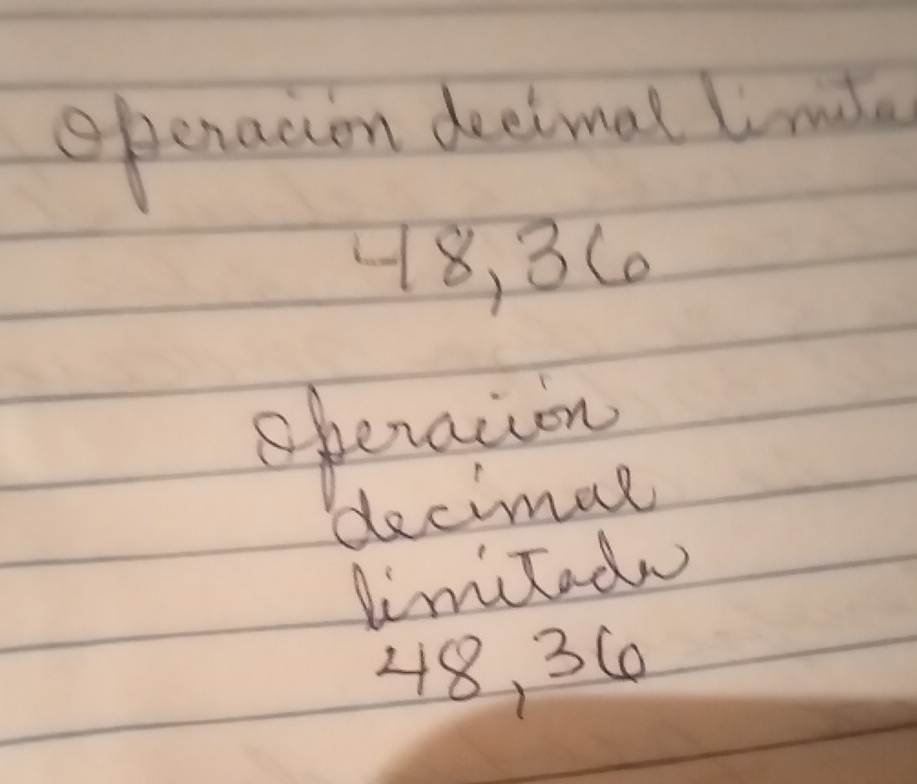 Operación decimal limita
48,36
Operación
decimal
limitada
48,36